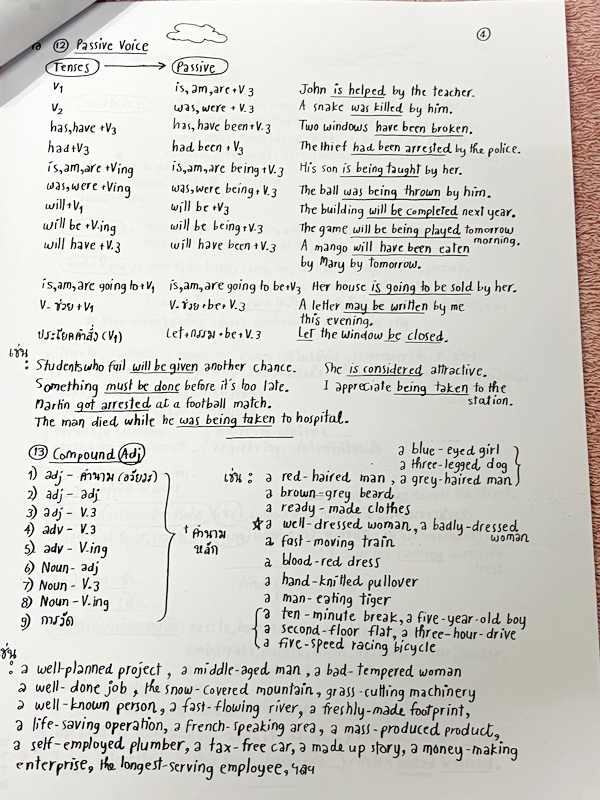 ⑫ Passive Voice ④
Tenses → Passive
V1 is, am, are + V.3 John is helped by the teacher.
V2 was, were + V.3 A snake was killed by him.
has, have + V3 has, have been + V.3 Two windows have been broken.
had + V3 had been + V.3 The thief had been arrested by the police.
is, am, are + Ving is, am, are being + V.3 His son is being taught by her.
was, were + Ving was, were being + V.3 The ball was being thrown by him.
will + V1 will be + V3 The building will be completed next year.
will be + V.ing will be being + V.3 The game will be being played tomorrow
morning.
will have + V.3 will have been + V.3 A mango will have been eaten
by Mary by tomorrow.
is, am, are going to + V1 is, am, are going to be + V3 Her house is going to be sold by her.
V- ช่วย + V1 V- ช่วย + be + V.3 A letter may be written by me
this evening.
ประโยคคำสั่ง (V1) Let + กรรม + be + V.3 Let the window be closed.
เช่น
: Students who fail will be given another chance. She is considered attractive.
Something must be done before it's too late. I appreciate being taken to the
station.
Martin got arrested at a football match.
The man died while he was being taken to hospital.
⑬ Compound Adj
a blue-eyed girl
a three-legged dog
1) adj - คำนาม (อวัยวะ) เช่น : a red-haired man, a grey-haired man
2) adj - adj a brown-grey beard
3) adj - V.3 a ready-made clothes
4) adv - V.3 ☆ a well-dressed woman, a badly-dressed
woman
5) adv - V.ing + คำนามหลัก a fast-moving train
6) Noun - adj a blood-red dress
7) Noun - V.3 a hand-knitted pullover
8) Noun - V.ing a man-eating tiger
9) การวัด a ten-minute break, a five-year-old boy
a second-floor flat, a three-hour-drive
a five-speed racing bicycle
เช่น
: a well-planned project, a middle-aged man, a bad-tempered woman
a well-done job, the snow-covered mountain, grass-cutting machinery
a well-known person, a fast-flowing river, a freshly-made footprint,
a life-saving operation, a French-speaking area, a mass-produced product,
a self-employed plumber, a tax-free car, a made up story, a money-making
enterprise, the longest-serving employee, ฯลฯ